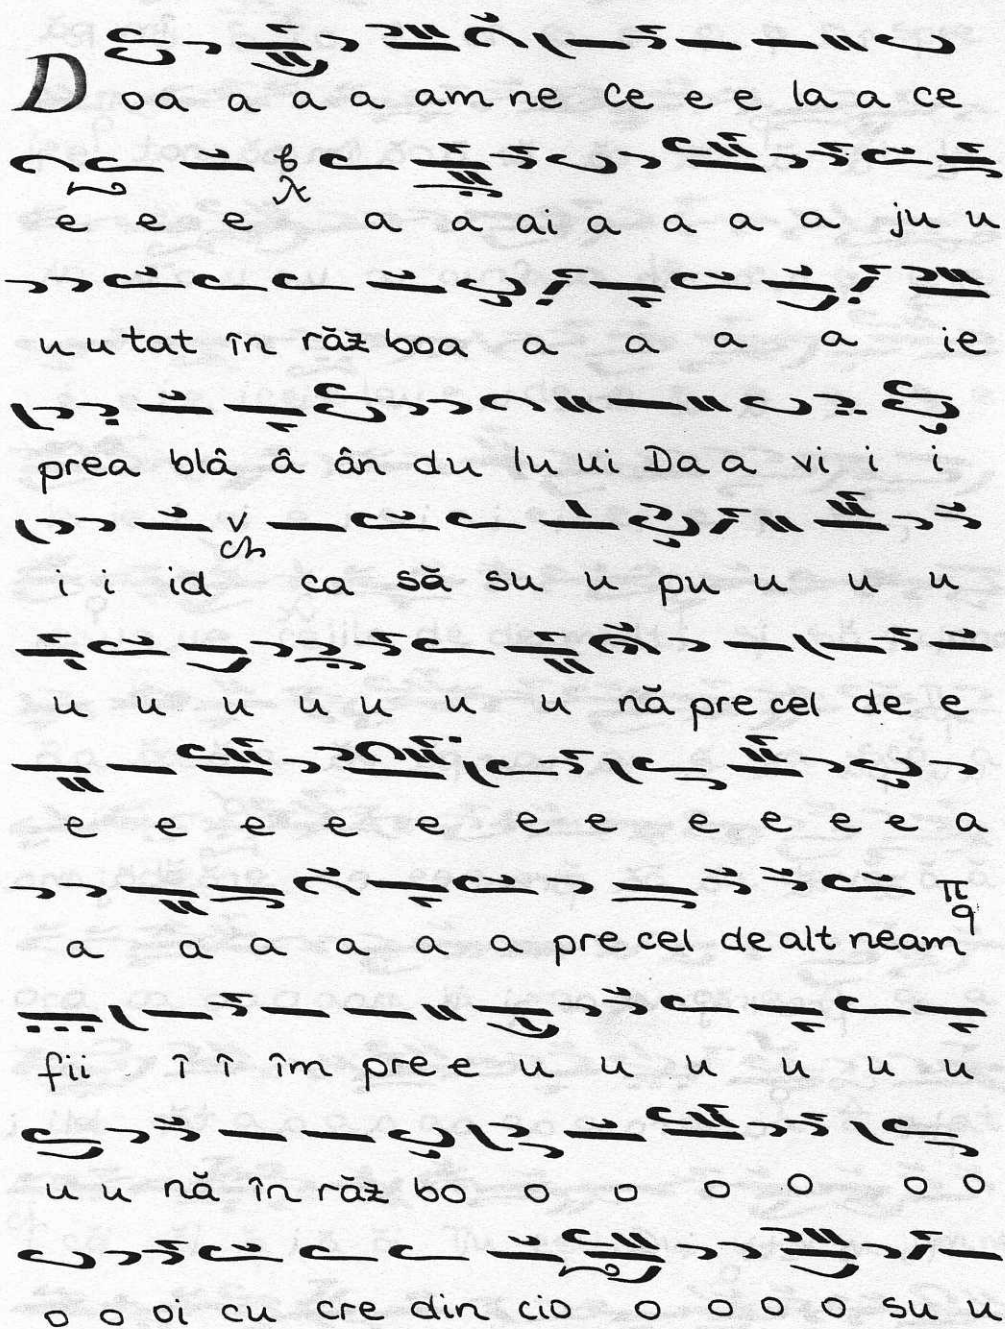 Doa a a a am ne ce e e la a ce
e e e a a ai a a a a ju u
u u tat în răz boa a a a a ie
prea blâ â ân du lu ui Da a vi i i
i i id ca să su u pu u u u
u u u u u u u nă pre cel de e
e e e e e e e e e e e a
a a a a a a pre cel de alt neam
fii î î îm pre e u u u u u u
u u nă în răz bo o o o o o o
o o oi cu cre din cio o o o o su u